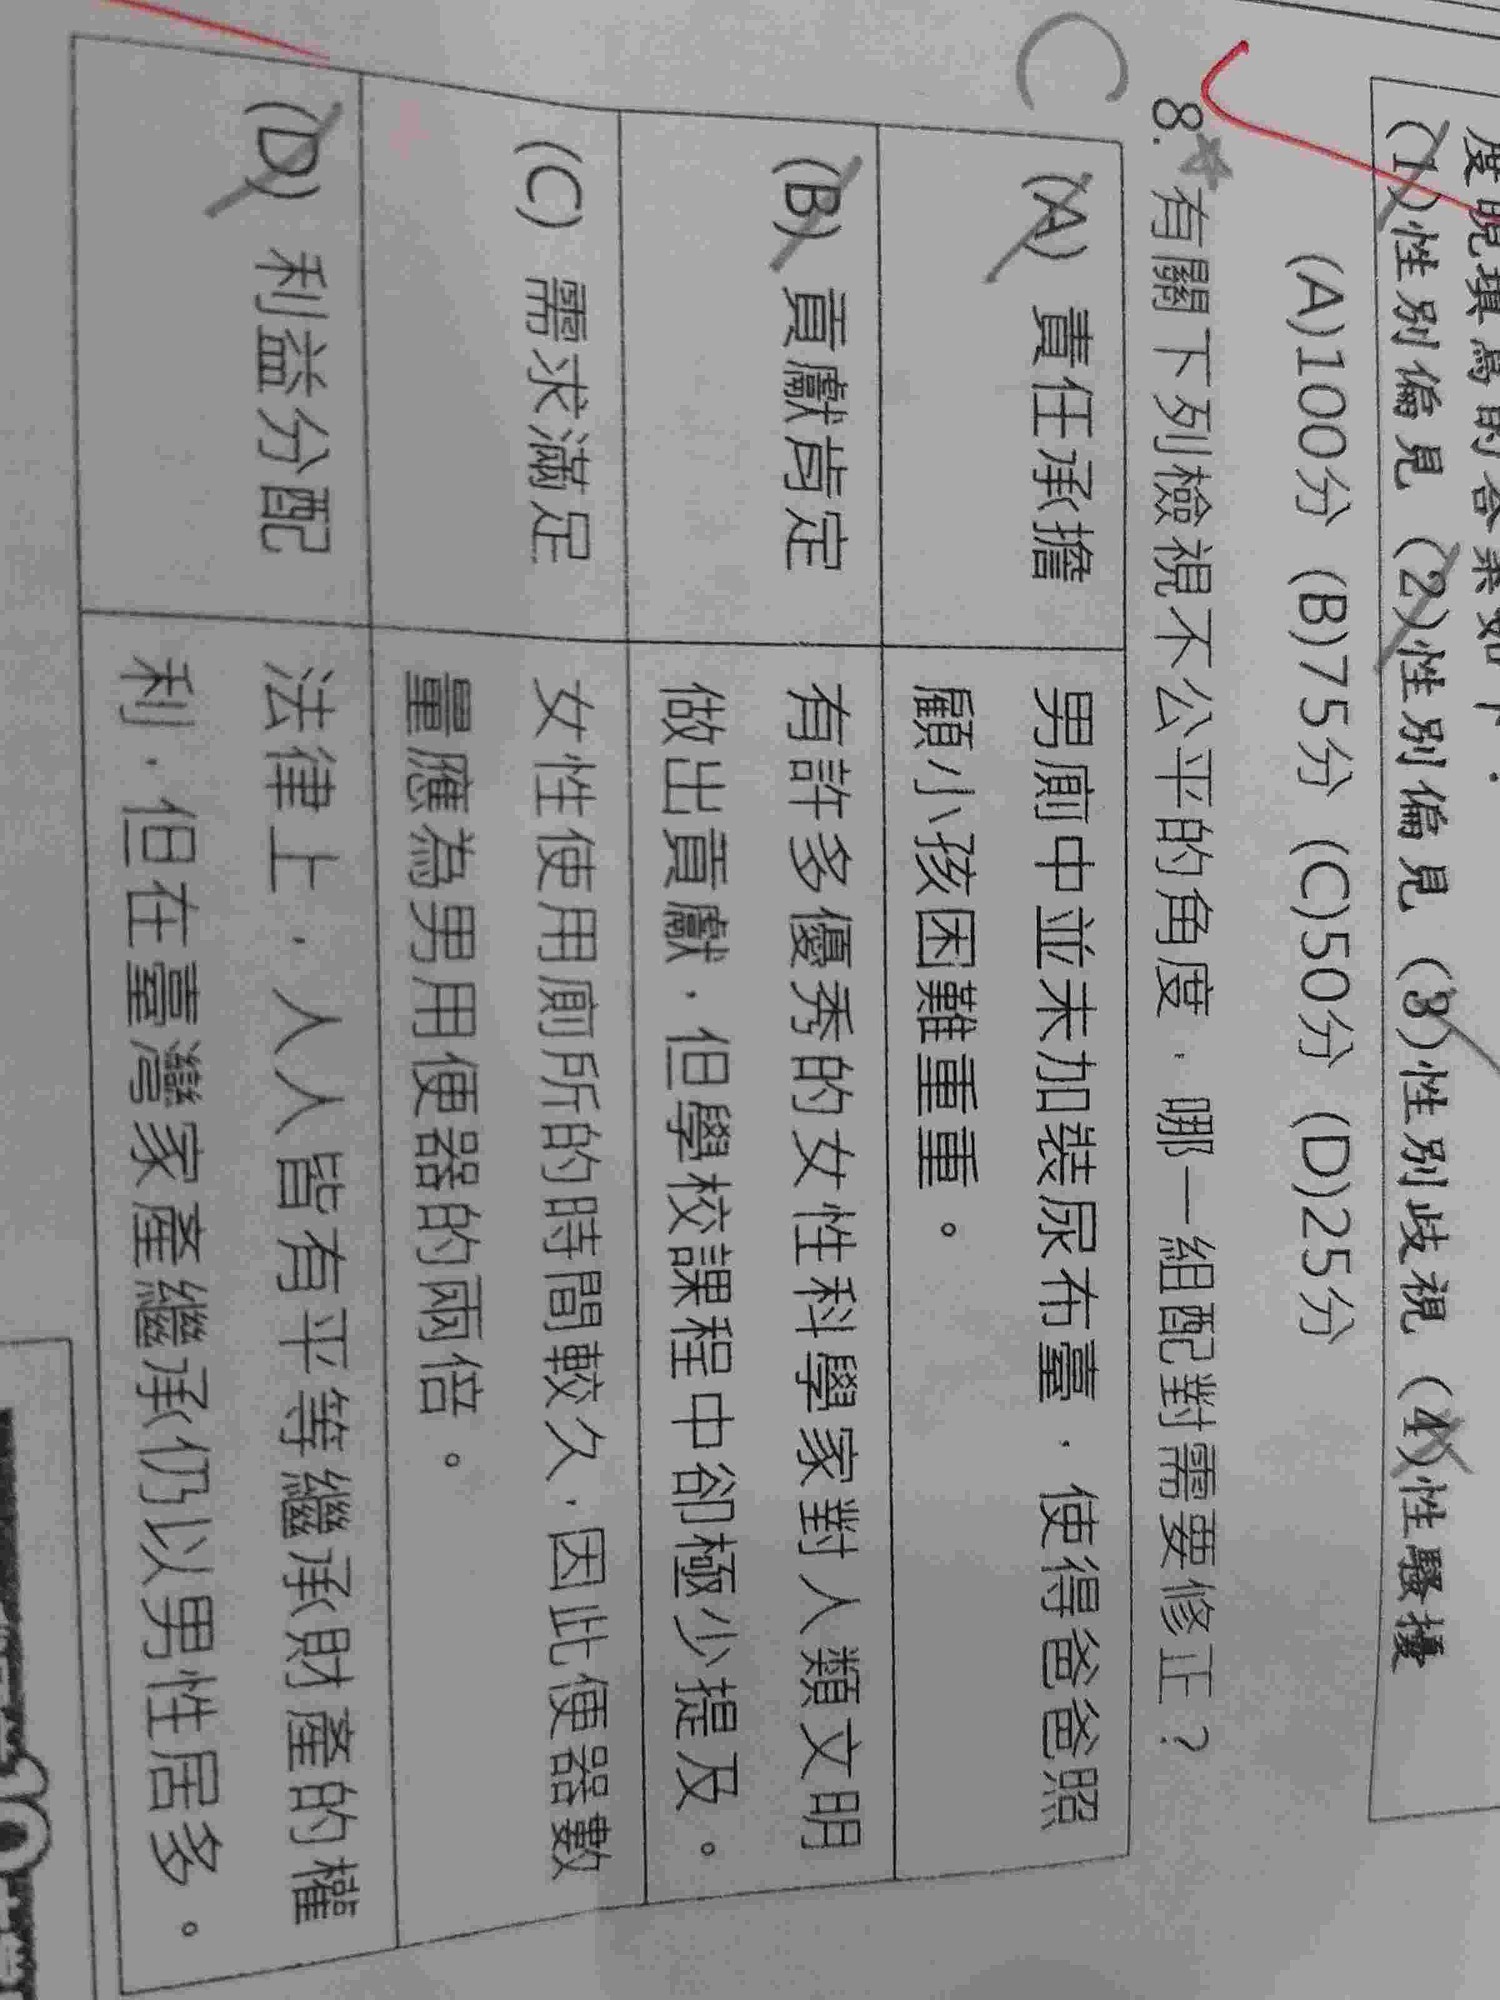 度況填寫的答案如下：
(1)性別偏見 (2)性別偏見 (3)性別歧視 (4)性騷擾
(A)100分 (B)75分 (C)50分 (D)25分
C 8.☆有關下列檢視不公平的角度，哪一組配對需要修正？
(A) 責任承擔
男廁中並未加裝尿布臺，使得爸爸照
顧小孩困難重重。
(B) 貢獻肯定
有許多優秀的女性科學家對人類文明
做出貢獻，但學校課程中卻極少提及。
(C) 需求滿足
女性使用廁所的時間較久，因此便器數
量應為男用便器的兩倍。
(D) 利益分配
法律上，人人皆有平等繼承財產的權
利，但在臺灣家產繼承仍以男性居多。